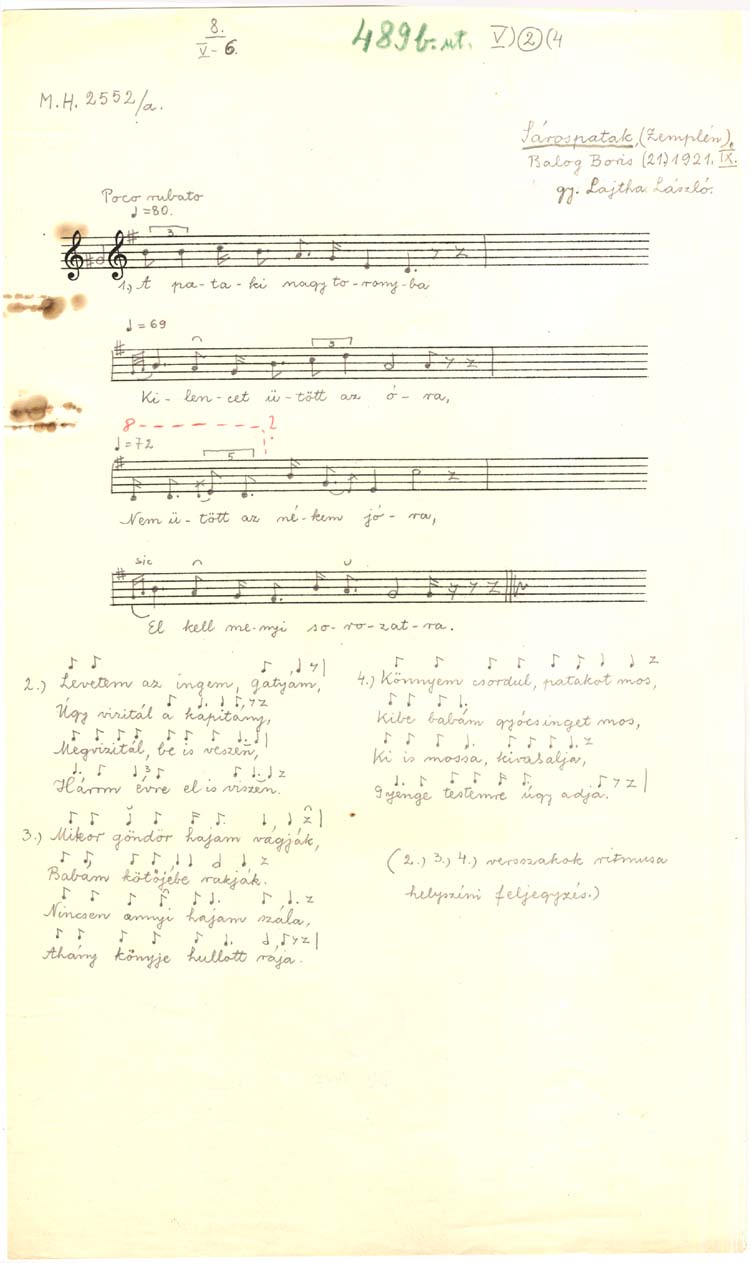 8.
V-6.
489b. ut. V) 2 (4
M.H. 2552/a.
Sárospatak, (Zemplén),
Balog Boris (21) 1921. IX.
gy. Lajtha László.
Poco rubato
♩=80.
3
1.) A pa-ta-ki nagy to-rony-ba
♩=69
3
Ki-len-cet ü-tött az ó-ra,
8
♩=72
5
Nem ü-tött az né-kem jó-ra,
sic
El kell me-nyi so-ro-zat-ra.
2.) Levetem az ingem, gatyám,
Úgy vizitál a kapitány,
Megvizitál, be is veszën,
3
Három évre el is viszën.
3.) Mikor göndör hajam vágják,
Babám kötőjébe rakják.
Nincsen annyi hajam szála,
Ahány könyje hullott rája.
4.) Könnyem csordul, patakot mos,
Kibe babám gyócsinget mos,
Ki is mossa, kivasalja,
Gyenge testemre úgy adja.
(2.) 3.) 4.) versszakok ritmusa
helyszíni feljegyzés.)